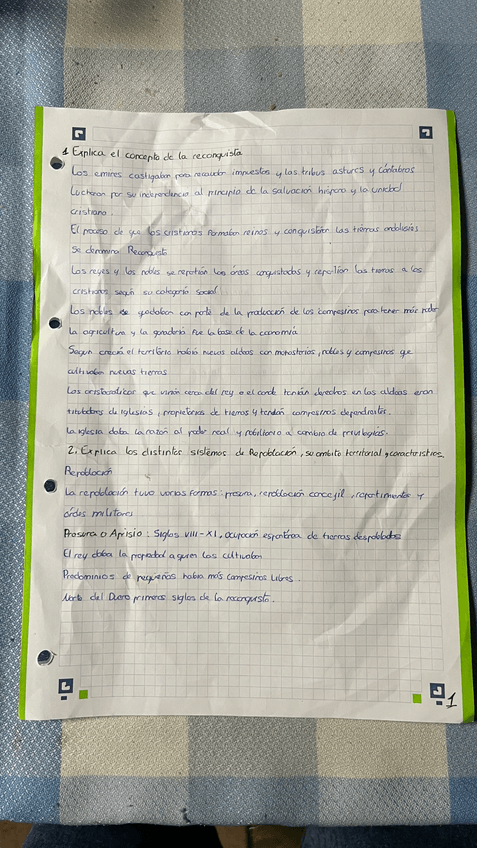 1 Explica el concepto de la reconquista
Los emires castigaban para recaudar impuestos y las tribus astures y cántabros
Lucharon por su independencia al principio de la salvación hispana y la unidad
cristiana.
El proceso de que los cristianos formaban reinos y conquistaban las tierras andalusíes
Se denomina Reconquista
Los reyes y los nobles se repartían las áreas conquistadas y repartían las tierras a los
cristianos según su categoría social
Los nobles se quedaban con parte de la producción de los campesinos para tener más poder
La agricultura y la ganadería fue la base de la economía
Según crecía el territorio había nuevas aldeas con monasterios, nobles y campesinos que
cultivaban nuevas tierras
Los aristócratas que vivían cerca del rey o el conde tenían derechos en las aldeas eran
de iglesias, propietarios de tierras y tenían campesinos dependientes.
La iglesia daba la razón al poder real y nobiliario a cambio de privilegios.
2. Explica los distintos sistemas de Repoblación, su ámbito territorial y características
Repoblación
La repoblación tuvo varias formas: presura, repoblación concejil, repartimientos y
órdes militares
Presura o Aprisio: Siglos VIII-XI, ocupación espontánea de tierras despobladas
El rey daba la propiedad a quien las cultivaban
Predominios de pequeños había más campesinos libres.
Norte del Duero primeros siglos de la reconquista.
1